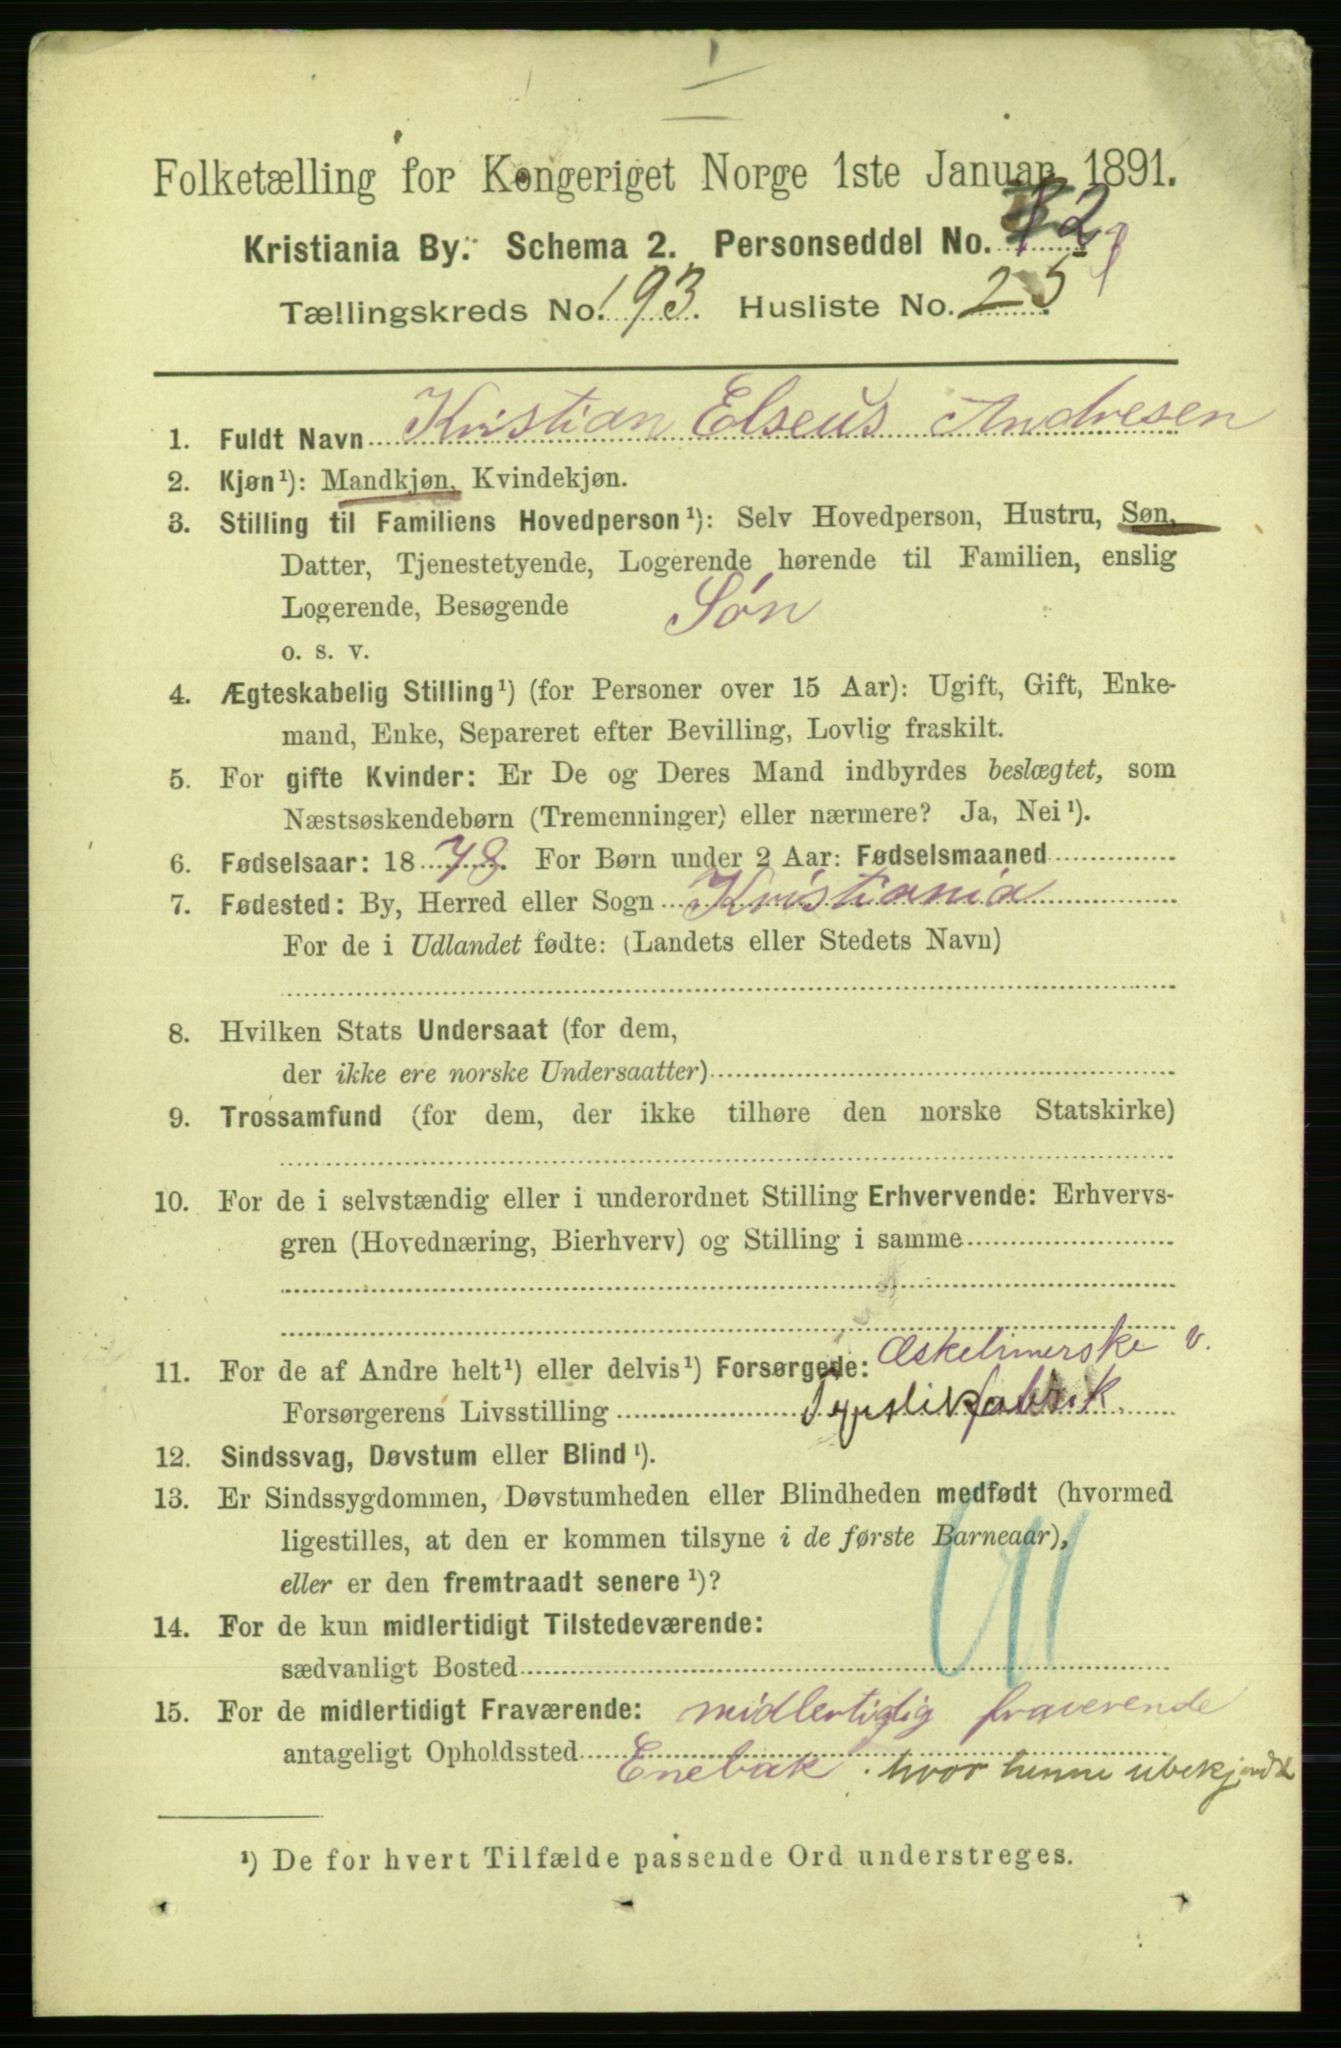 Folketælling for Kongeriget Norge 1ste Januar 1891.
Kristiania By. Schema 2. Personseddel No. 12
Tællingskreds No. 193. Husliste No. 25.
1. Fuldt Navn Kristian Elseus Andresen
2. Kjøn¹): Mandkjøn, Kvindekjøn.
3. Stilling til Familiens Hovedperson¹): Selv Hovedperson, Hustru, Søn,
Datter, Tjenestetyende, Logerende hørende til Familien, enslig
Logerende, Besøgende Søn
o. s. v.
4. Ægteskabelig Stilling¹) (for Personer over 15 Aar): Ugift, Gift, Enke-
mand, Enke, Separeret efter Bevilling, Lovlig fraskilt.
5. For gifte Kvinder: Er De og Deres Mand indbyrdes beslægtet, som
Næstsøskendebørn (Tremenninger) eller nærmere? Ja, Nei¹).
6. Fødselsaar: 1878. For Børn under 2 Aar: Fødselsmaaned
7. Fødested: By, Herred eller Sogn Kristiania
For de i Udlandet fødte: (Landets eller Stedets Navn)
8. Hvilken Stats Undersaat (for dem,
der ikke ere norske Undersaatter)
9. Trossamfund (for dem, der ikke tilhøre den norske Statskirke)
10. For de i selvstændig eller i underordnet Stilling Erhvervende: Erhvervs-
gren (Hovednæring, Bierhverv) og Stilling i samme
11. For de af Andre helt¹) eller delvis¹) Forsørgede: Æskelimerske v.
Forsørgerens Livsstilling fabrik
12. Sindssvag, Døvstum eller Blind¹).
13. Er Sindssygdommen, Døvstumheden eller Blindheden medfødt (hvormed
ligestilles, at den er kommen tilsyne i de første Barneaar),
eller er den fremtraadt senere¹)?
14. For de kun midlertidigt Tilstedeværende:
sædvanligt Bosted
15. For de midlertidigt Fraværende: midlertidig fraverende
antageligt Opholdssted Enebak. hvor henne ubekjendt
¹) De for hvert Tilfælde passende Ord understreges.